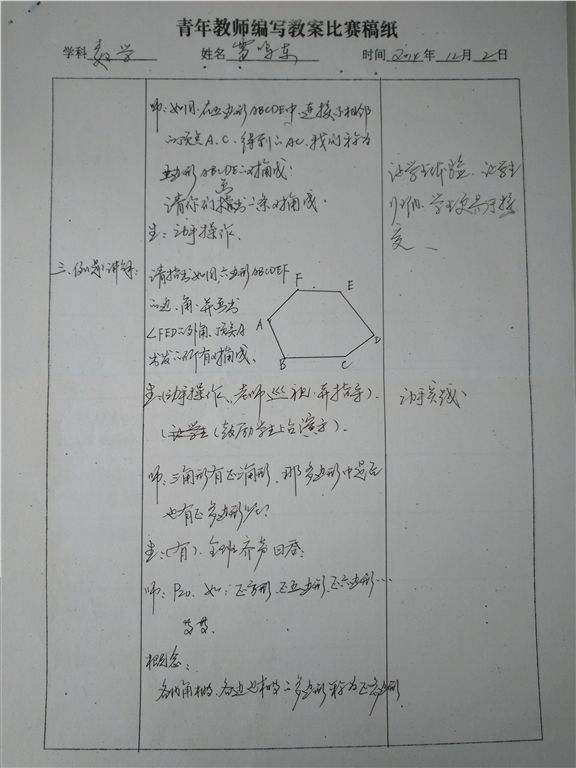 青年教师编写教案比赛稿纸
学科 数学 姓名 时间 2014年12月2日
师:如图,在五边形ABCDE中,连接不相邻
的顶点A、C,得到的AC,我们称为
五边形ABCDE的对角线;
请你们指出一条对角线.
画
生:动手操作.
让学生体验,让学生
归纳,学生更易于接
受、
三、例题讲解:
请指出如图,六边形ABCDEF
的边、角,并画出
∠FED的外角,顶点A
出发的所有对角线.
F E
A D
B C
生:(动手操作,老师巡视,并指导).
(让学生(鼓励学生上台演示).
动手实践
师:三角形有正三角形,那多边形中是否
也有正多边形呢?
生:(有).全班齐声回答:
师:P20,如:正方形、正五边形、正六边形…
等等.
概念:
各内角相等、各边也相等的多边形称为正多边形